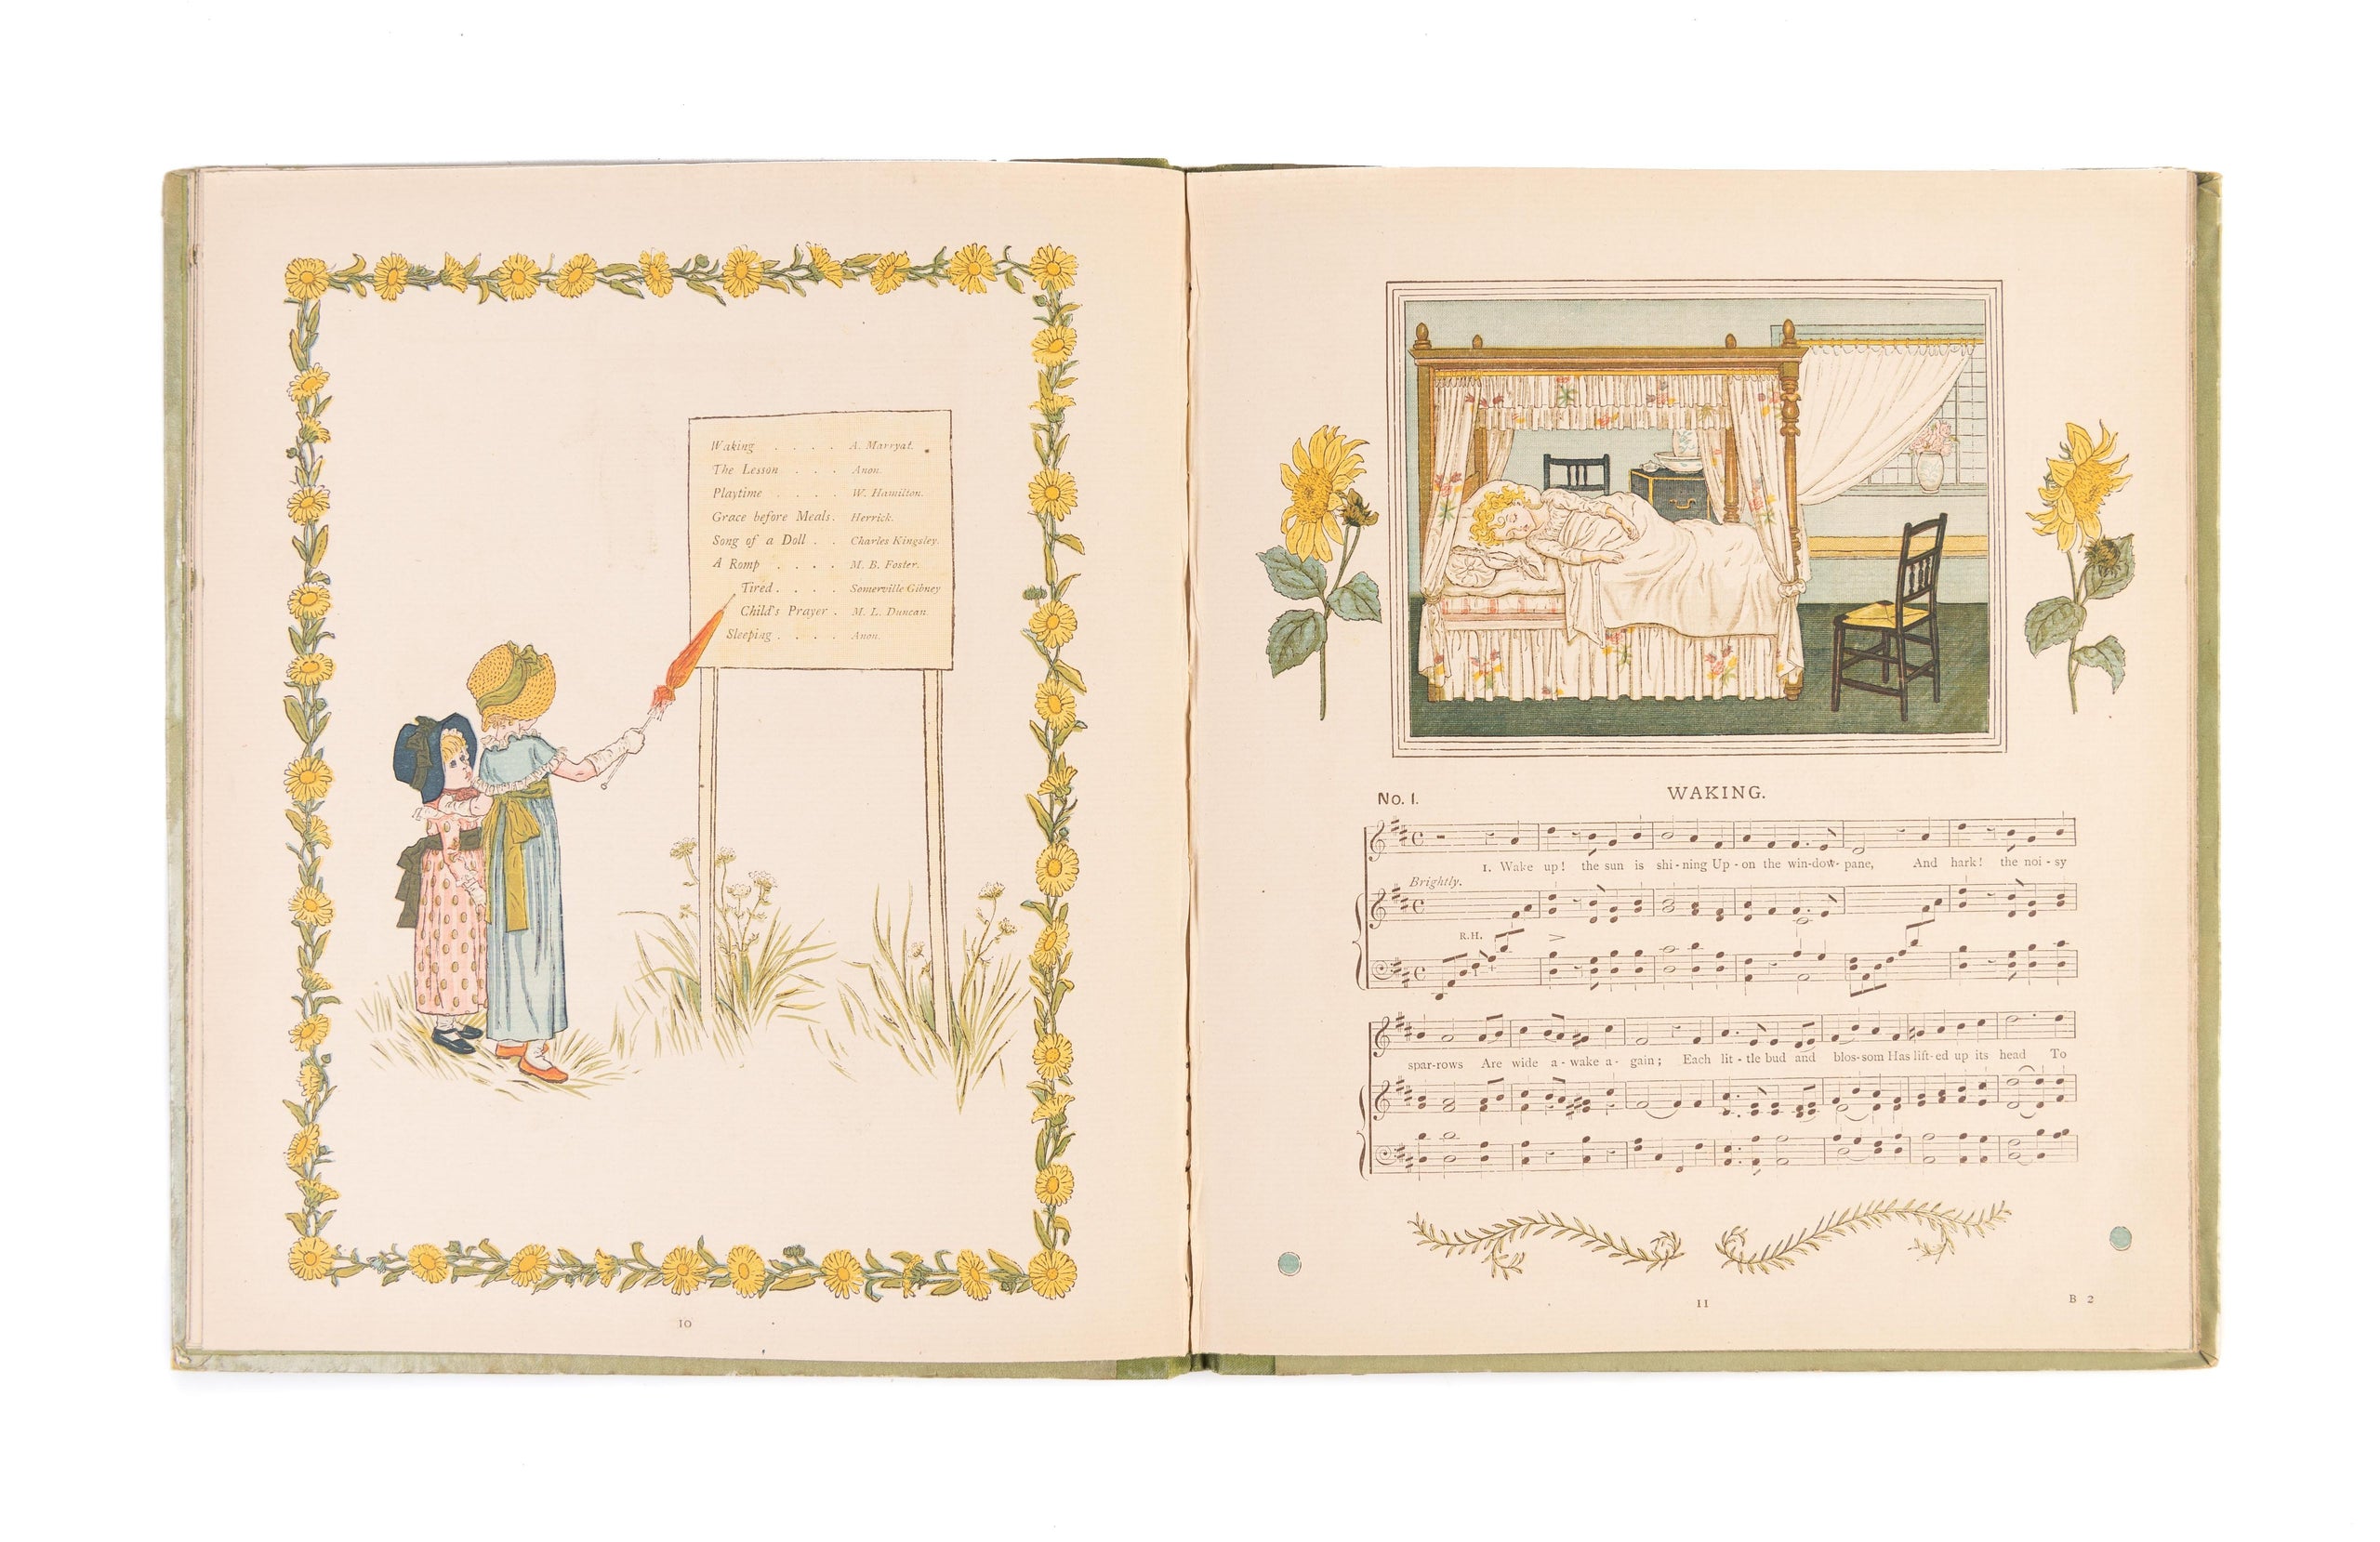 Waking . . . . A. Marryat.
The Lesson . . . Anon.
Playtime . . . . W. Hamilton.
Grace before Meals. Herrick.
Song of a Doll . . Charles Kingsley.
A Romp . . . . M. B. Foster.
Tired. . . . Somerville Gibney
Child's Prayer . M. L. Duncan.
Sleeping . . . . Anon.
10
No. 1.
WAKING.
1. Wake up! the sun is shi-ning Up-on the win-dow-pane, And hark! the noi-sy
Brightly.
R.H.
spar-rows Are wide a-wake a-gain; Each lit-tle bud and blos-som Has lift-ed up its head To
11
B 2